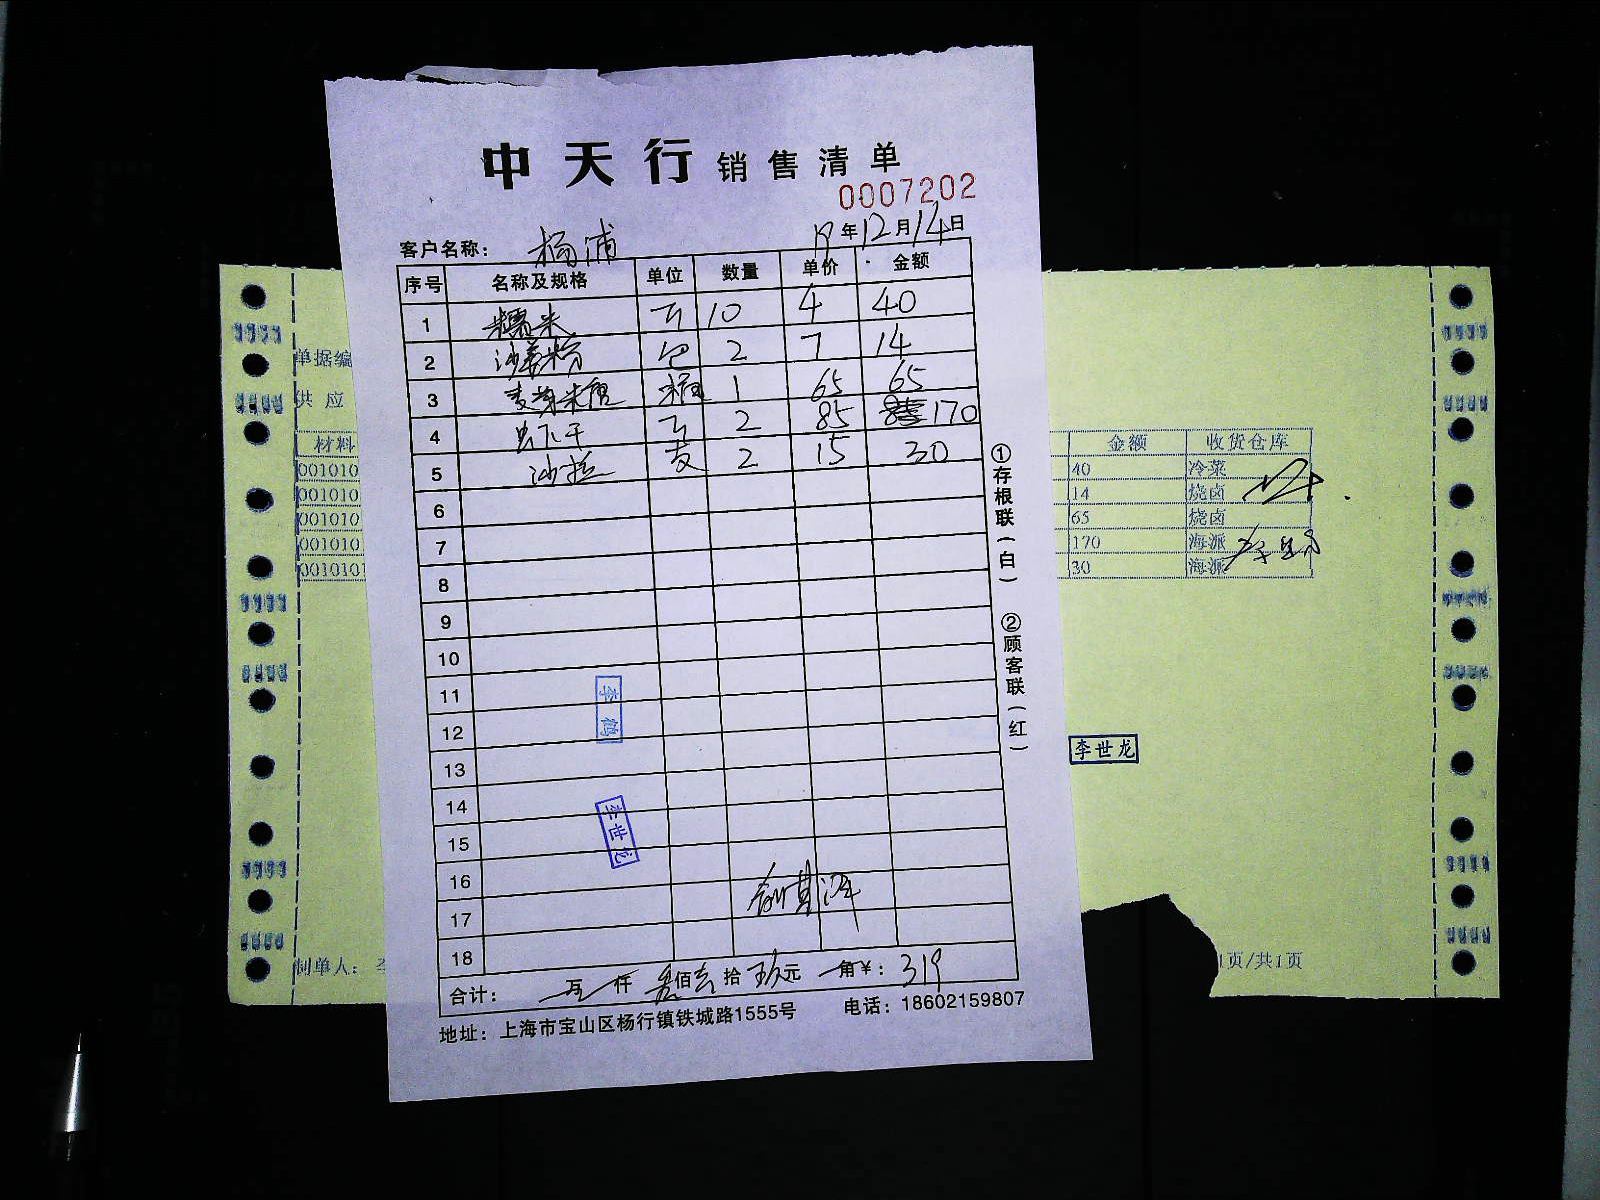 中天行 销售清单
0007202
客户名称： 杨浦 19年12月14日
序号 名称及规格 单位 数量 单价 金额
1 糯米 斤 10 4 40
2 沙姜粉 包 2 7 14
3 麦芽糖 桶 1 65 65
4 斤 2 85 170
5 沙拉 支 2 15 30
6
7
8
9
10
11
12
13
14
15
16
17
18
李鹤
李世龙
合计： 仟 叁佰壹拾玖元 角￥： 319
地址：上海市宝山区杨行镇铁城路1555号 电话：18602159807
①存根联（白） ②顾客联（红）
单据编
供应
材料 金额 收货仓库
001010 40 冷菜
001010 14 烧卤
001010 65 烧卤
001010 170 海派
0010101 30 海派
李世龙
制单人： 1页/共1页